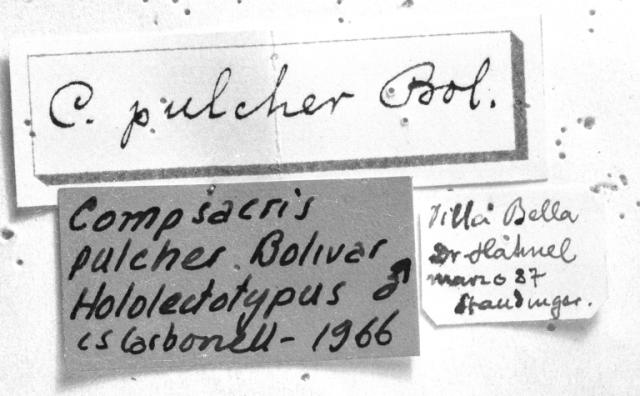 C. pulcher Bol.
Compsacris
pulcher Bolivar
Hololectotypus ♂
CS Carbonell - 1966
Villa Bella
Dr Hähnel
marzo 87
Staudinger.